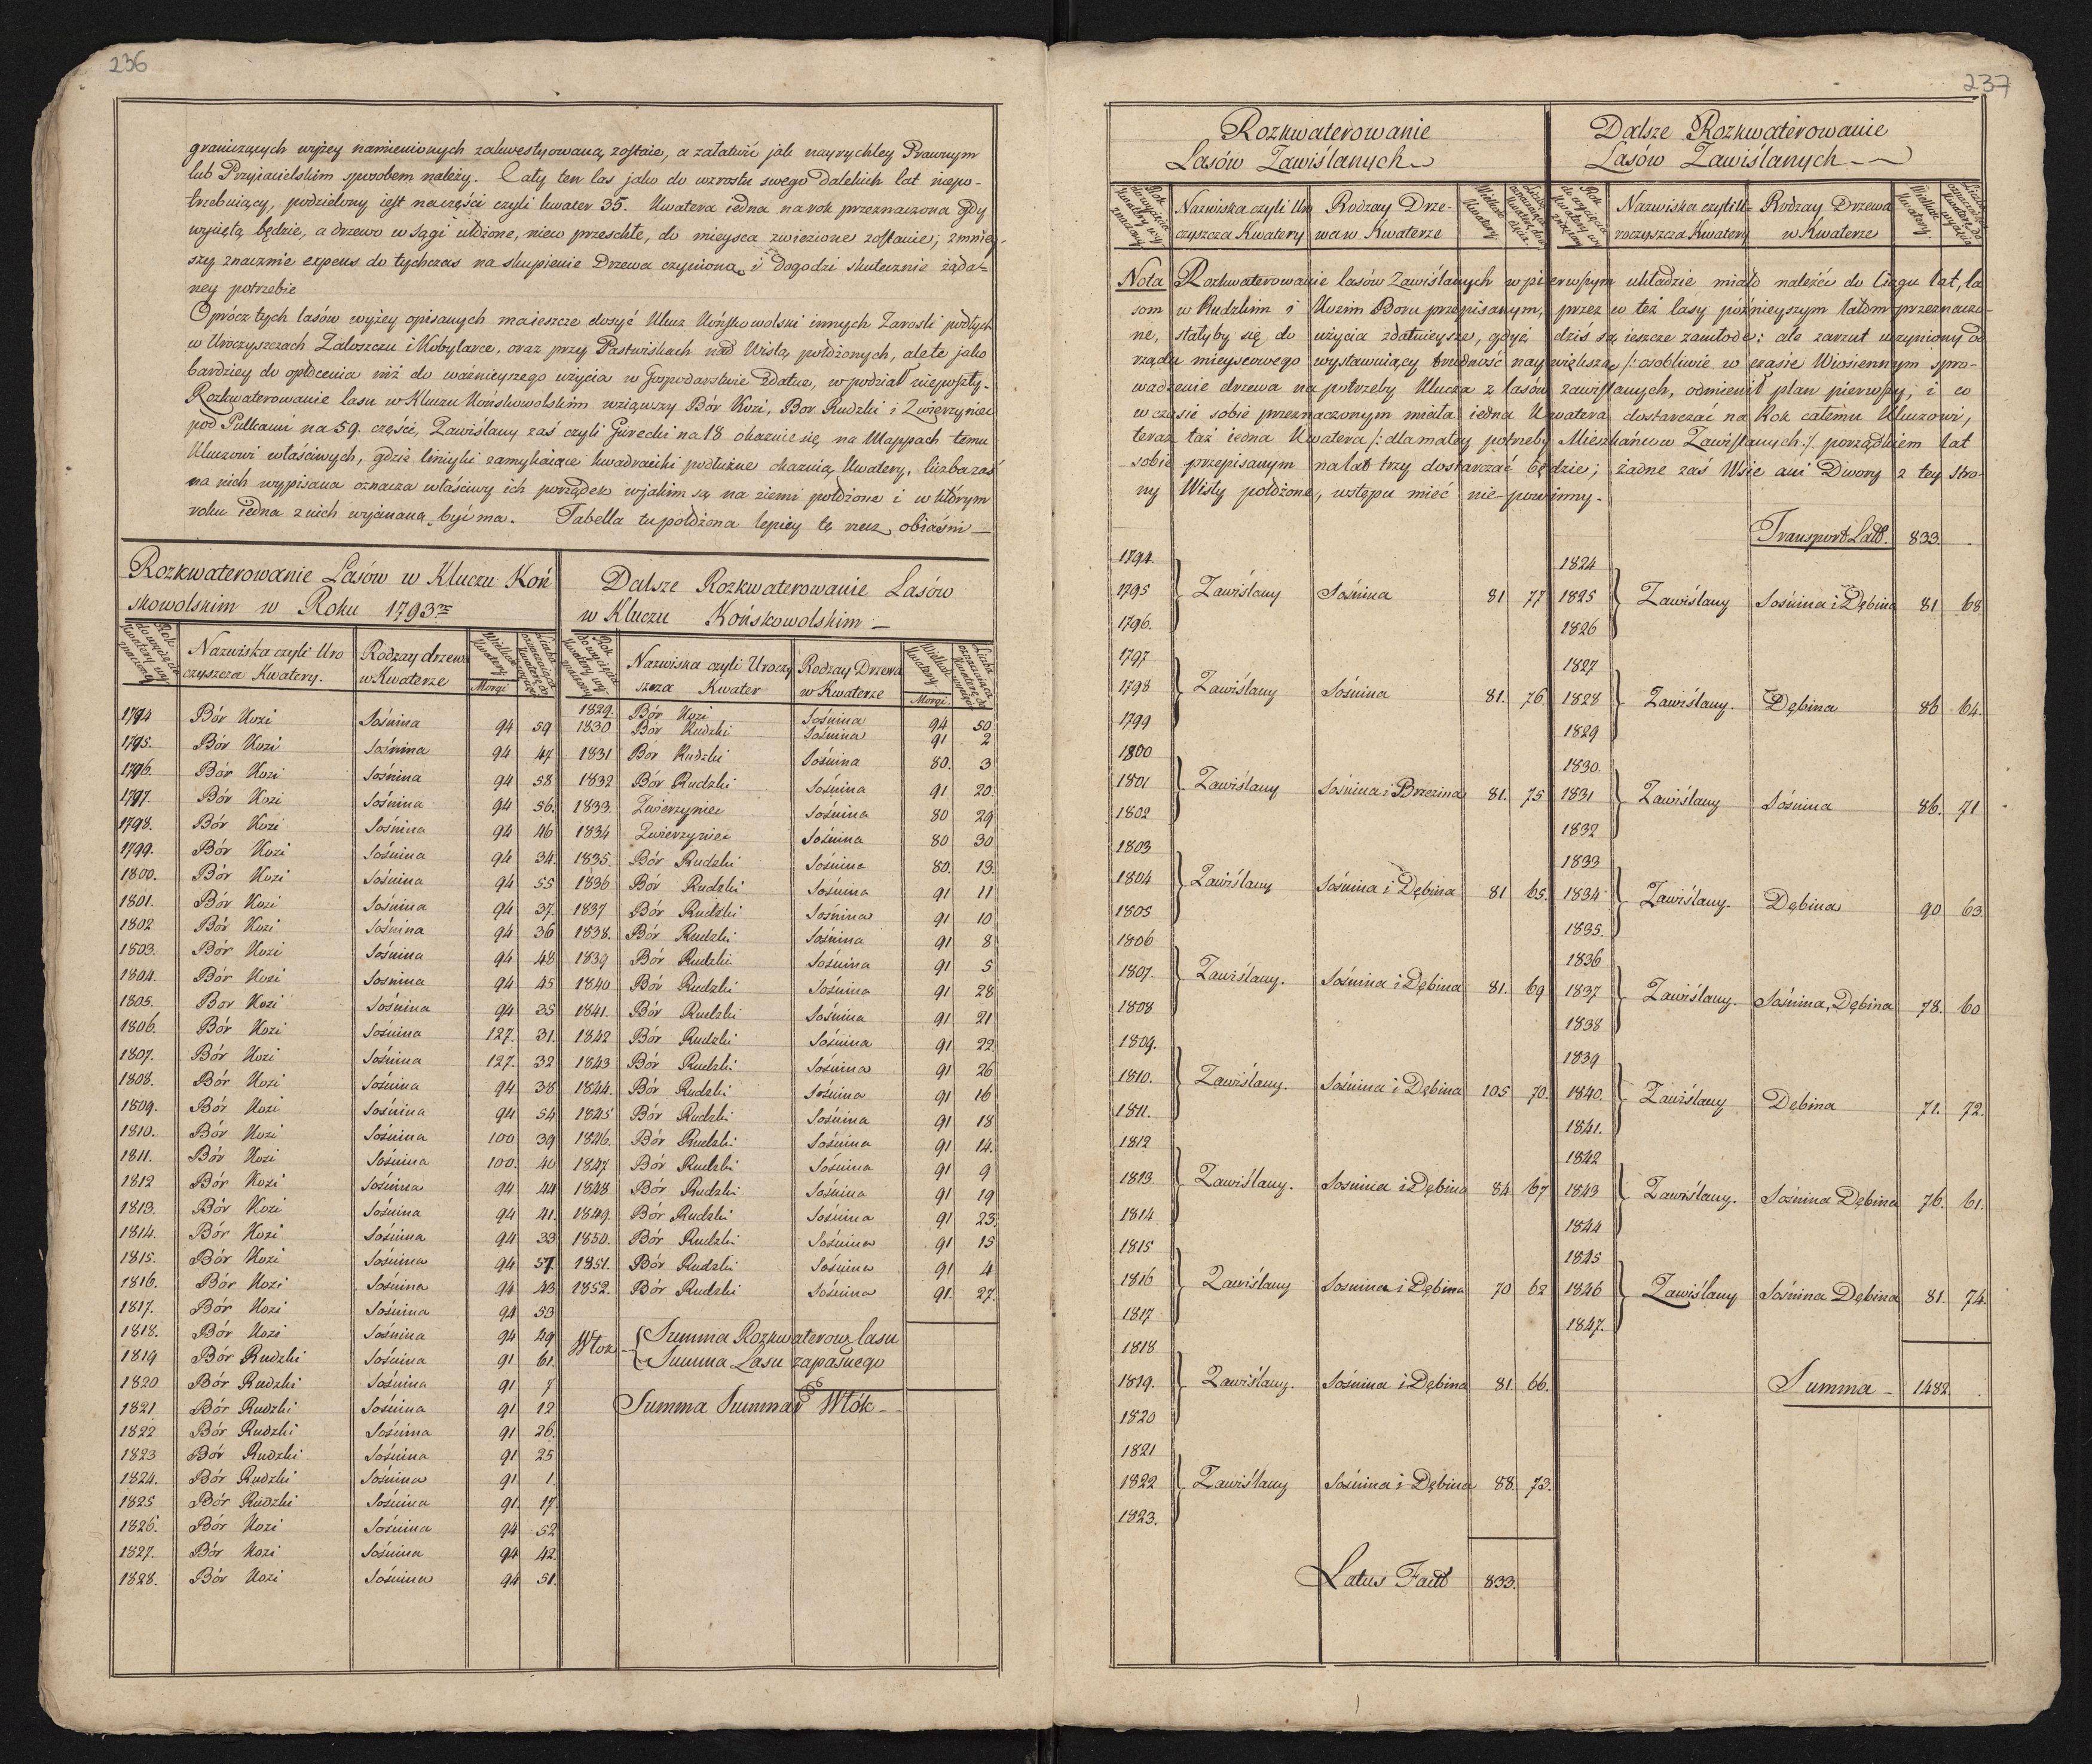 236
graniczących wyżey namienionych zakwestyowaną zostaie, a załatwić jak nayrychley Prawnym
lub Przyiacielskim sposobem należy. Cały ten las jako do wzrostu swego dalekich lat niepo-
trzebuiący, podzielony iest na części czyli kwater 35. Kwatera iedna na rok przeznaczona gdy
wyciętą będzie, a drzewo w sągi ułożone, nieco przeschłe, do mieysca zwiezione zostanie; zmniey-
szy znacznie expens do tychczas na skupienie Drzewa czyniona, i dogodzi skutecznie żąda-
ney potrzebie
Oprócz tych lasów wyżey opisanych ma ieszcze dosyć Klucz Końskowolski innych Zarosli
w Uroczyszczach Zaloszczu i Kobylarce, oraz przy Pastwiskach nad Wisłą położonych, ale te jako
bardziey do opłócenia niż do ważnieyszego użycia w Gospodarstwie zdatne, w podział niewyszły.
Rozkwaterowanie lasu w Kluczu Końskowolskim wziąwszy Bór Kozi, Bor Rudzki i Zwierzyniec
pod Pulkami na 59. części, Zawiślany zaś czyli Gurecki na 18 okazuie się na Mappach temu
Kluczowi właściwych, gdzie liniyki zamykaiące kwadraciki podłużne okazuią Kwatery, liczba zaś
na nich wypisana oznacza właściwy ich porządek w jakim są na ziemi położone i w którym
roku iedna z nich wycinaną być ma. Tabella tu położona lepiey tę rzecz obiaśni
Rozkwaterowanie Lasów w Kluczu Koń
skowolskim w Roku 1793
Rok do wycięcia Kwatery wyznaczony | Nazwiska czyli Uroczyszcza Kwatery. | Rodzay drzewa w Kwaterze | Wielkość Kwatery Morgi | Liczba oznaczaiąca Kwaterę do wycięcia
1794 Bór Kozi Sośnina 94 59
1795. Bór Kozi Sośnina 94 47
1796. Bór Kozi Sośnina 94 58
1797. Bór Kozi Sośnina 94 56.
1798. Bór Kozi Sośnina 94 46
1799. Bór Kozi Sośnina 94 34.
1800. Bór Kozi Sośnina 94 55
1801. Bór Kozi Sośnina 94 37.
1802 Bór Kozi Sośnina 94 36
1803. Bór Kozi Sośnina 94 48
1804. Bór Kozi Sosnina 94 45
1805. Bor Kozi Sośnina 94 35
1806. Bór Kozi Sośnina 127. 31.
1807. Bór Kozi Sośnina 127. 32
1808. Bór Kozi Sośnina 94 38
1809. Bór Kozi Sośnina 94 54
1810. Bór Kozi Sośnina 100 39
1811. Bór Kozi Sośnina 100. 40
1812 Bór Kozi Sośnina 94 44
1813. Bór Kozi Sośnina 94 41.
1814. Bór Kozi Sośnina 94 33
1815. Bór Kozi Sośnina 94 57.
1816. Bór Kozi Sośnina 94 43
1817. Bór Kozi Sośnina 94 53
1818. Bór Kozi Sośnina 94 49
1819 Bór Rudzki Sośnina 91 61.
1820 Bór Rudzki Sośnina 91 7
1821 Bór Rudzki Sośnina 91 12
1822 Bór Rudzki Sośnina 91 26.
1823 Bór Rudzki Sośnina 91 25
1824. Bór Rudzki Sośnina 91 1.
1825 Bór Rudzki Sośnina 91. 17.
1826. Bór Kozi Sośnina 94 52
1827. Bór Kozi Sośnina 94 42.
1828. Bór Kozi Sośnina 94 51.
Dalsze Rozkwaterowanie Lasów
w Kluczu Końskowolskim
Rok do wycięcia Kwatery wyznaczony | Nazwiska czyli Uroczyszcza Kwater | Rodzay Drzewa w Kwaterze | Wielkość Kwatery Morgi. | Liczba oznaczaiąca Kwaterę do wycięcia
1829. Bór Kozi Sośnina 94 50.
1830 Bór Rudzki Sośnina 91 2
1831 Bór Rudzki Sośnina 80. 3
1832 Bór Rudzki Sośnina 91 20.
1833. Zwierzyniec Sośnina 80 29
1834 Zwierzyniec Sośnina 80 30
1835. Bór Rudzki Sośnina 80. 13.
1836 Bór Rudzki Sośnina 91 11
1837 Bór Rudzki Sośnina 91 10
1838. Bór Rudzki Sośnina 91 8
1839 Bór Rudzki Sośnina 91 5
1840 Bór Rudzki Sośnina 91 28
1841. Bór Rudzki Sośnina 91 21
1842 Bór Rudzki Sośnina 91 22.
1843 Bór Rudzki Sośnina 91 26
1844. Bór Rudzki Sośnina 91 16
1845 Bór Rudzki Sośnina 91 18
1846. Bór Rudzki Sośnina 91 14.
1847 Bór Rudzki Sośnina 91 9
1848 Bór Rudzki Sośnina 91 19
1849. Bór Rudzki Sośnina 91 23.
1850. Bór Rudzki Sośnina 91 15
1851. Bór Rudzki Sośnina 91 4
1852. Bór Rudzki Sośnina 91. 27.
Włok Summa Rozkwaterow: lasu
Summa Lasu zapasnego
Summa Summar Włók
237
Rozkwaterowanie
Lasów Zawiślanych
Dalsze Rozkwaterowanie
Lasów Zawiślanych
Rok do wycięcia Kwatery wyznaczony | Nazwiska czyli Uroczyszcza Kwatery | Rodzay Drzewa w Kwaterze | Wielkość Kwatery | Liczba oznaczaiąca Kwaterę do wycięcia
Rok do wycięcia Kwatery wyznaczony | Nazwiska czyli Uroczyszcza Kwatery | Rodzay Drzewa w Kwaterze | Wielkość Kwatery | Liczba oznaczaiąca Kwaterę do wycięcia
Nota Rozkwaterowanie lasów Zawiślanych w pierwszym układzie miało należéć do Ciągu lat, la
som w Rudzkim i Kozim Boru przepisanym, przez w też lasy poźnieyszym latom przeznaczo-
ne, stałyby się do użycia zdatnieysze, gdyż dziś są ieszcze zamłode: ale zarzut uczyniony od
rządu mieyscowego wystawuiący trudność naywiększą /:osobliwie w czasie Wiosiennym spro-
wadzenie drzewa na potrzeby Klucza z lasów zawiślanych, odmienił plan pierwszy, i co
w czasie sobie przeznaczonym miała iedna Kwatera dostarczać na Rok całemu Kluczowi,
teraz taż iedna Kwatera /:dla małey potrzeby Mieszkańców Zawiślanych:/ porządkiem lat
sobie przepisanym na lat trzy dostarczać będzie; żadne zaś Wsie ani Dwory z tey stro-
ny Wisły położone, wstępu mieć nie powinny.
1794. 1795 1796. Zawiślany Sośnina 81 77
1797 1798 1799 Zawiślany Sośnina 81. 76.
1800 1801 1802 Zawiślany Sośnina i Brzezina 81. 75
1803 1804 1805 Zawiślany Sośnina i Dębina 81 65.
1806 1807. 1808 Zawiślany. Sośnina i Dębina 81. 69
1809. 1810. 1811. Zawiślany. Sośnina i Dębina 105 70.
1812 1813 1814 Zawiślany. Sosnina i Dębina 84 67
1815 1816 1817 Zawiślany Sosnina i Dębina 70 62
1818 1819. 1820 Zawiślany. Sośnina i Dębina 81. 66.
1821 1822 1823. Zawiślany Sośnina i Dębina 88. 73.
Latus Facit 833.
Transport Lat. 833.
1824 1825 1826 Zawiślany Sosnina i Dębina 81 68
1827 1828 1829 Zawiślany. Dębina 86 64.
1830. 1831 1832 Zawiślany Sośnina 86. 71
1833 1834 1835. Zawiślany. Dębina 90 63.
1836 1837 1838 Zawiślany. Sośnina, Dębina 78. 60
1839 1840. 1841. Zawiślany Dębina 71. 72.
1842 1843 1844 Zawiślany. Sośnina Dębina 76. 61.
1845 1846 1847. Zawiślany Sośnina Dębina 81. 74.
Summa 1482.